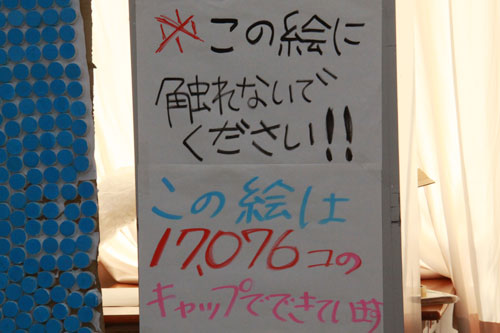 ※この絵に
触れないで
ください!!
この絵は
17,076コの
キャップでできています